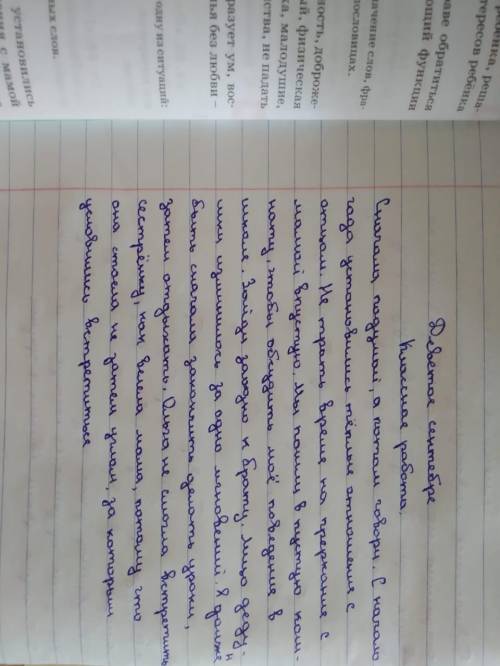 тересов ребёнка
раве обратиться
ющий функции
начение слов, фра-
пословицах.
ность, доброже-
ый, физическая
ка, малодушие,
дства, не падать
разует ум, вос-
ья без любви –
одну из ситуаций:
ных слов.
установились
с мамой
Девятое сентебре
Классная работа.
Сначала подумай, а потом говори. С начало
года установились тёплые отношения с
отцом. Не трать время на пререкание с
мамой впустую. Мы пошли в пустую ком-
нату, чтобы обсудить моё поведение в
школе. Зайди заодно к брату. Лицо деду-
шки изминилось за одно мгновений. Я должен
быть сначала закончить делать уроки,
затем отдыхать. Ольга не смогла встретить
сестрёнку, как велела мама, потому что
она стоела не затем углом, за которым
условились встретиться